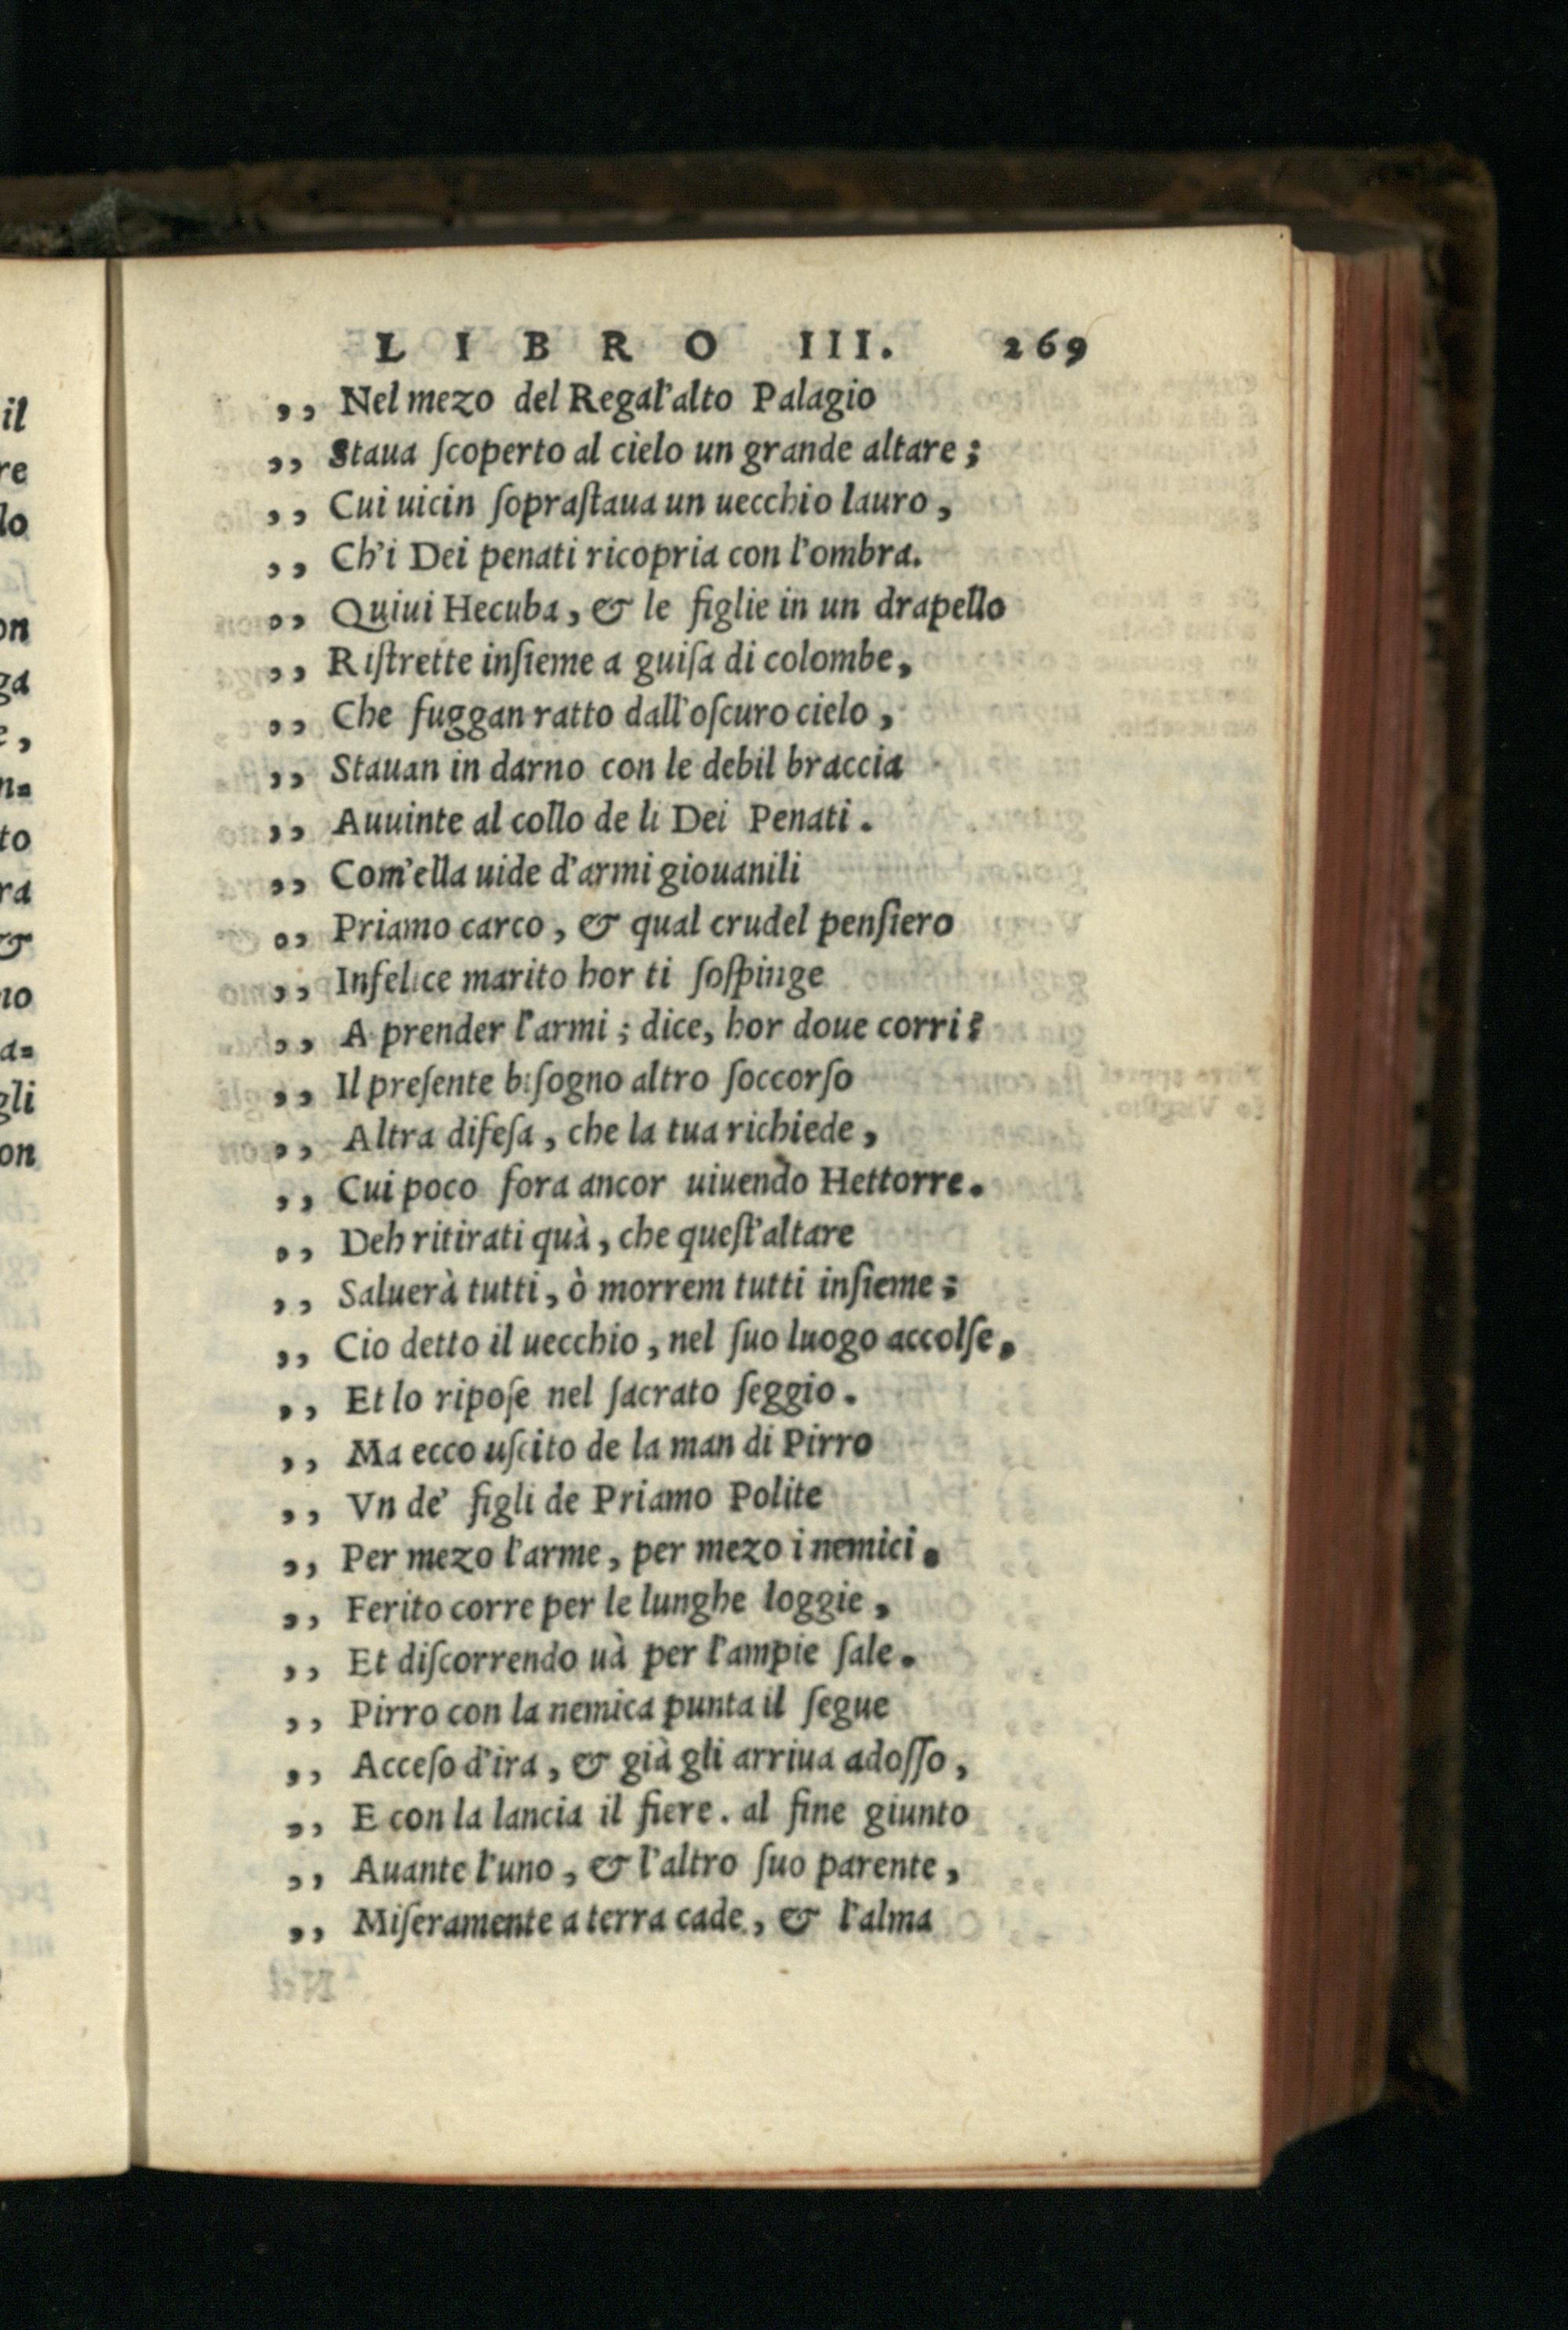 LIBRO III. 269
,, Nel mezo del Regal'alto Palagio
,, Staua ſcoperto al cielo un grande altare;
,, Cui uicin ſopraſtaua un uecchio lauro,
,, Ch'i Dei penati ricopria con l'ombra.
,, Quiui Hecuba, & le figlie in un drapello
,, Riſtrette inſieme a guiſa di colombe,
,, Che fuggan ratto dall'oſcuro cielo,
,, Stauan in darno con le debil braccia
,, Auuinte al collo de li Dei Penati.
,, Com'ella uide d'armi giouanili
,, Priamo carco, & qual crudel penſiero
,, Infelice marito hor ti ſoſpinge
,, A prender l'armi; dice, hor doue corri?
,, Il preſente biſogno altro ſoccorſo
,, Altra difeſa, che la tua richiede,
,, Cui poco fora ancor uiuendo Hettorre.
,, Deh ritirati quà, che queſt'altare
,, Saluerà tutti, ò morrem tutti inſieme;
,, Cio detto il uecchio, nel ſuo luogo accolſe,
,, Et lo ripoſe nel ſacrato ſeggio.
,, Ma ecco uſcito de la man di Pirro
,, Vn de' figli de Priamo Polite
,, Per mezo l'arme, per mezo i nemici.
,, Ferito corre per le lunghe loggie,
,, Et diſcorrendo uà per l'ampie ſale.
,, Pirro con la nemica punta il ſegue
,, Acceſo d'ira, & già gli arriua adoſſo,
,, E con la lancia il fiere. al fine giunto
,, Auante l'uno, & l'altro ſuo parente,
,, Miſeramente a terra cade, & l'alma